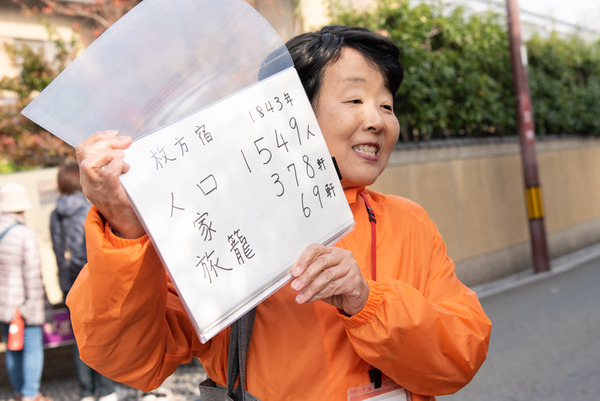 枚方宿 1843年
人口 1549人
家 378軒
旅籠 69軒